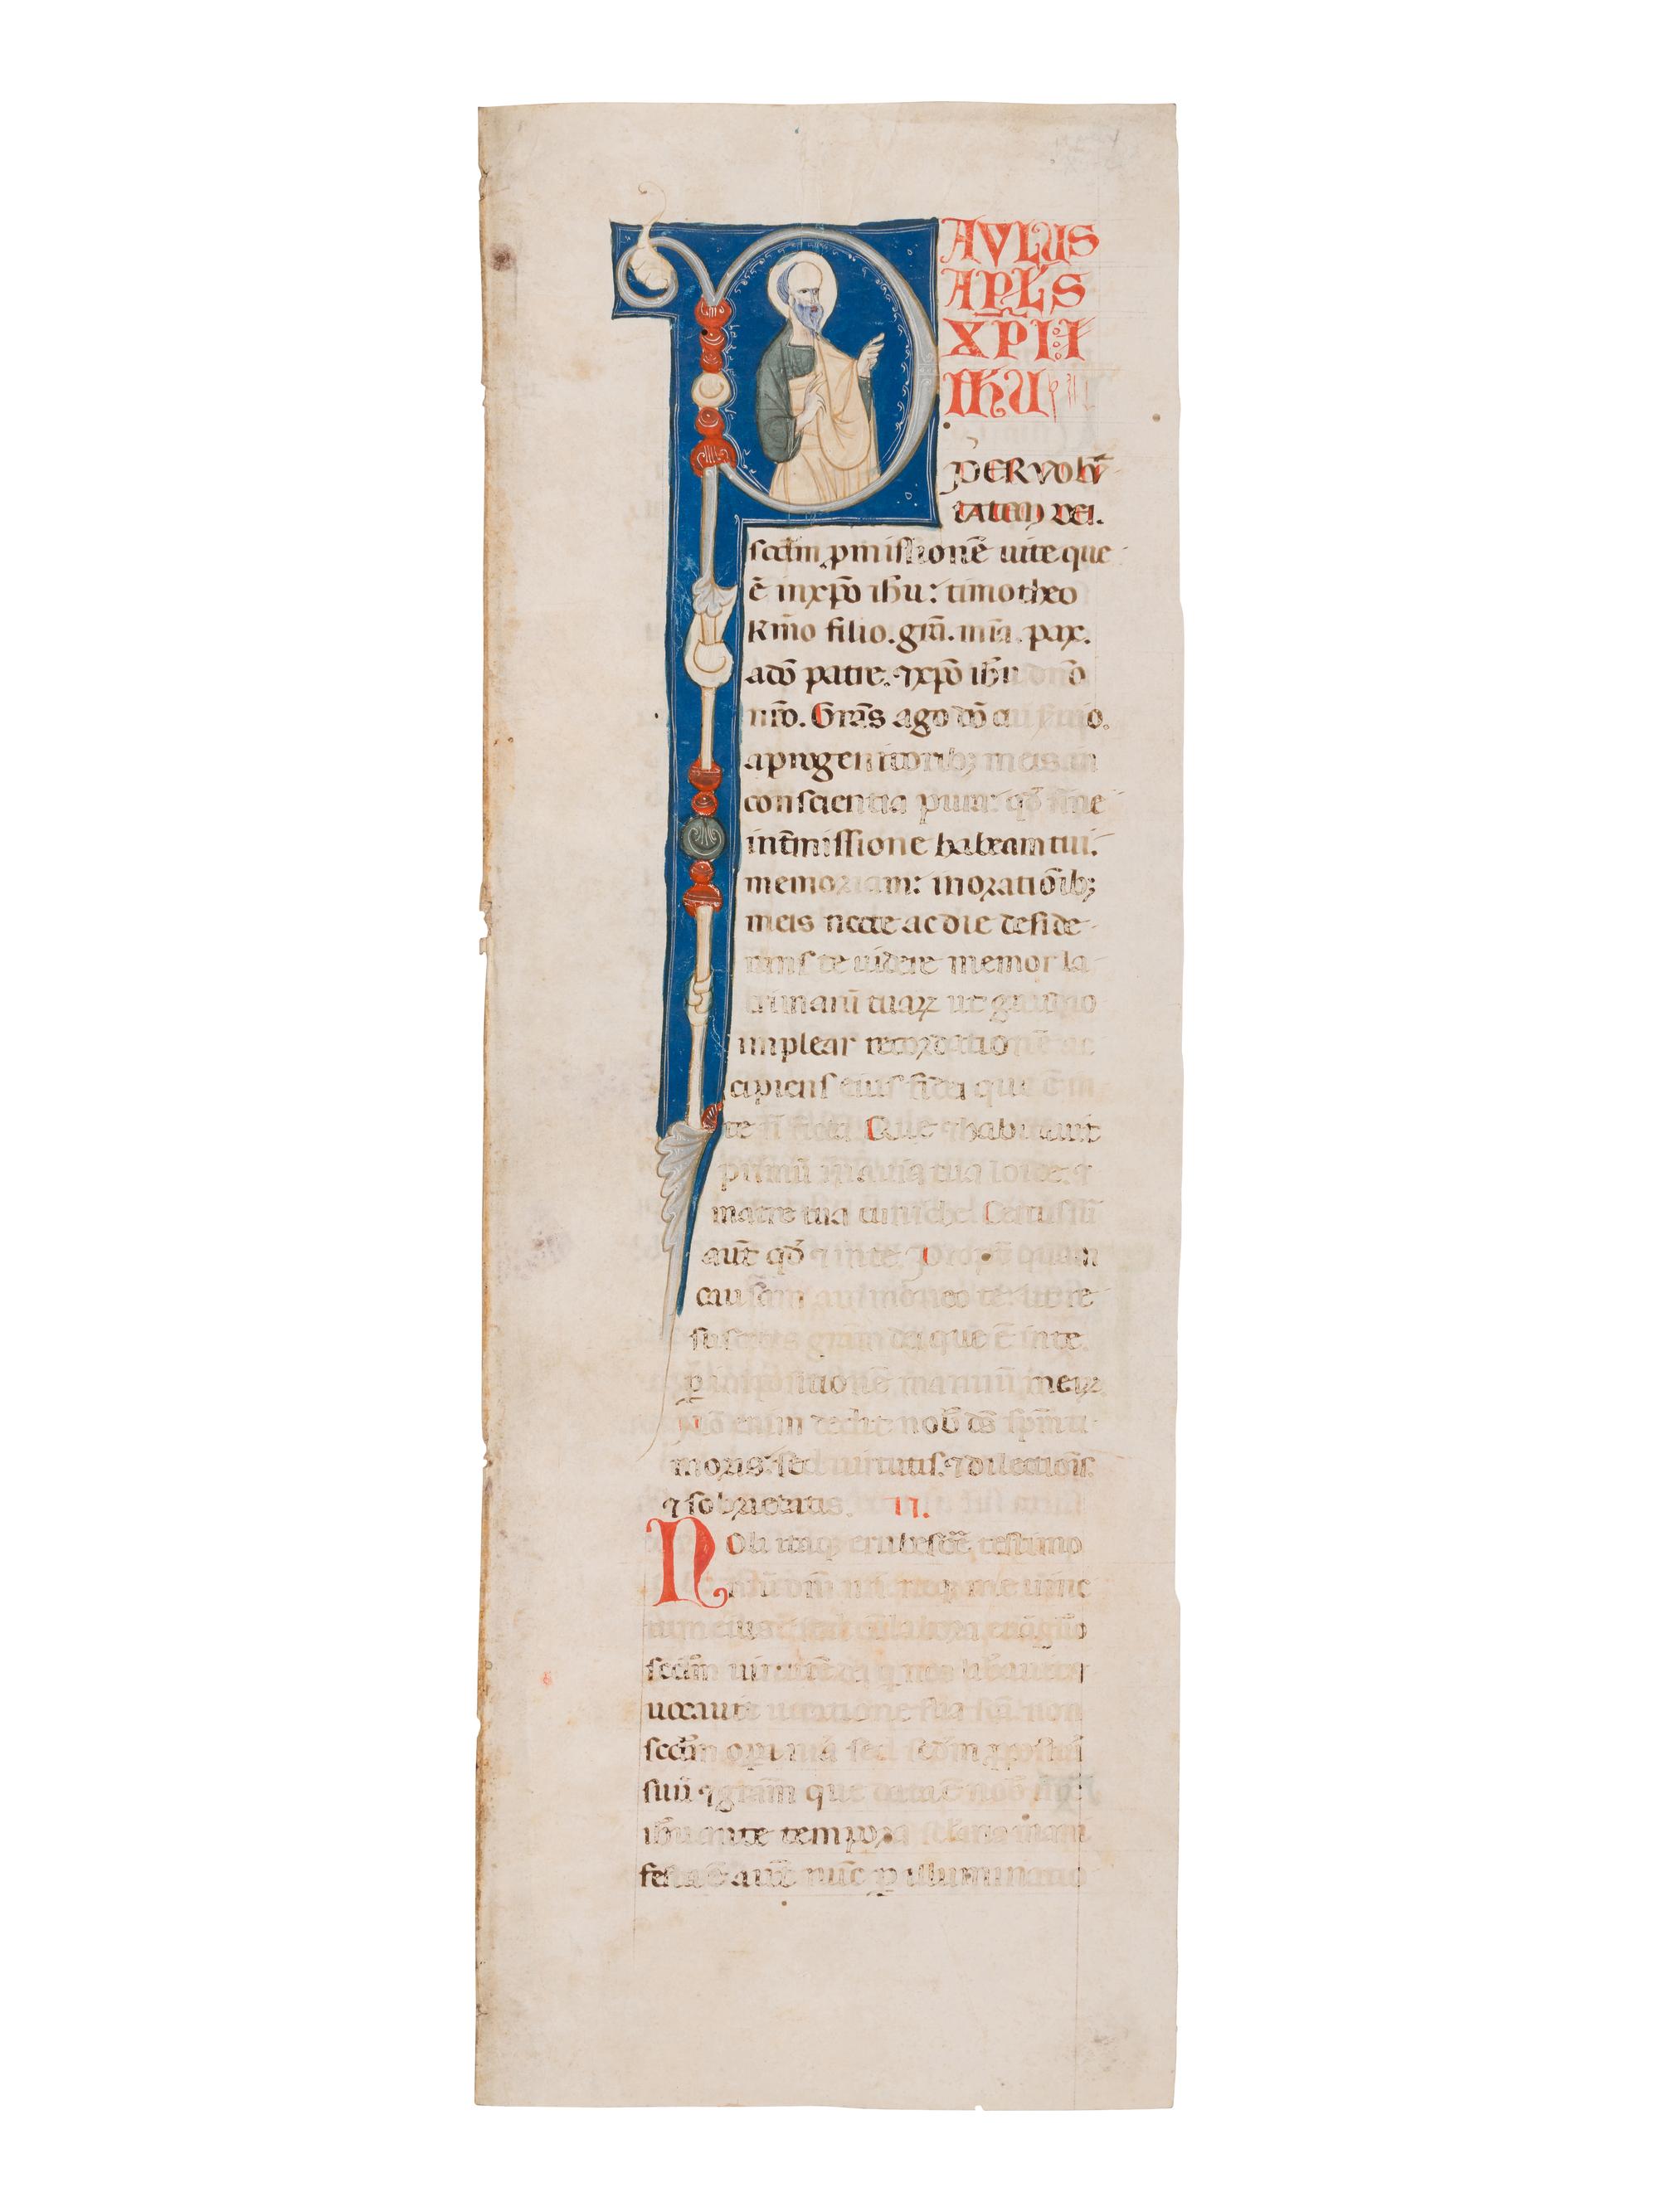 PAVLUS
APLS
XPI I
IHU
PER VOLŪ
TATEM DEI.
scd̄m ꝓmissionē uite que
ē in xp̄o ih̄u: timotheo
km̄o filio. grā. mīa. pax.
a dō patre. ⁊ xp̄o ih̄u dn̄o
nr̄o. Grās ago dō
a progenitoribꝫ meis in
conscientia pura: qd̄ sine
int̄missione habeam tui.
memoriam: in orationībꝫ
meis nocte ac die deside
rans te uidere memor la
crimarū tuaꝝ ut gaudio
implear recordationē ac
cipiens eius fidei que ē in
te ficta Que ⁊ habitauit
primū in auia tua loide. ⁊
matre tua Certus sū
aut̄ qd̄ ⁊ in te quam
causam admoneo te: ut re
suscites grām dei que ē in te
ꝑ impositionē manuū meaꝝ
enim dedit nob̄ ds̄ spm̄ ti
moris: sed uirtutis. ⁊ dilectiōis.
⁊ sobrietatis. II.
Noli itaqꝫ erubescē testimo
niū dn̄i nr̄i neqꝫ me uinc
tum eius sed
scd̄m uirtutē dei q nos
uocauit uocatione sua non
scd̄m opera nr̄a sed scd̄m
suū ⁊ grām que data ē nob̄
ih̄u ante tempora
festa ē aut̄ nūc ꝑ illuminatio